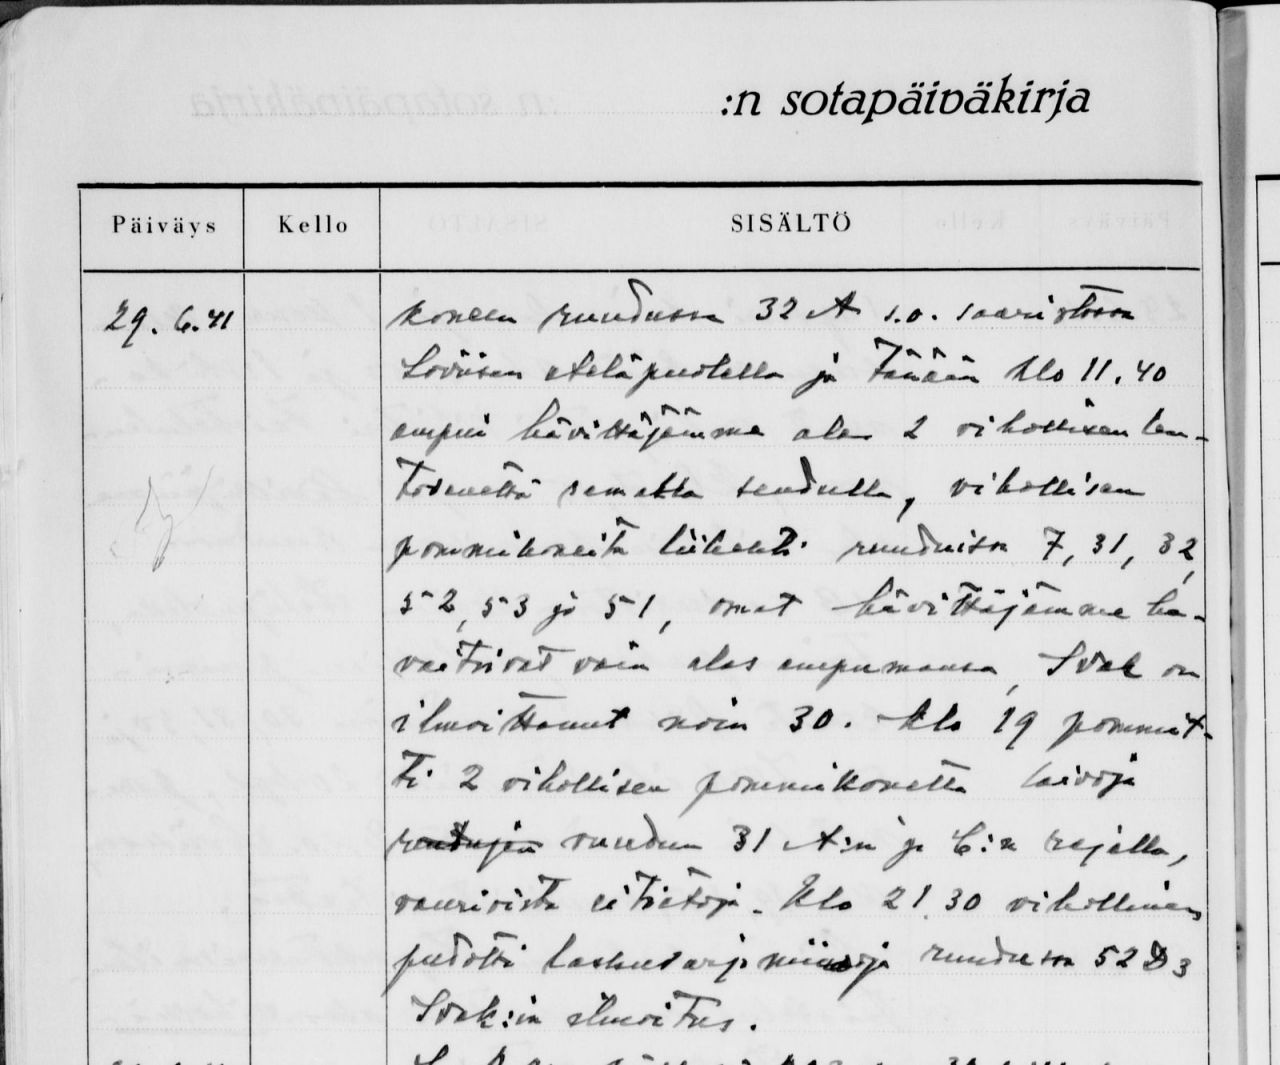 :n sotapäiväkirja
Päiväys Kello SISÄLTÖ
29.6.41 koneen ruudussa 32 A s.o. saaristossa
Loviisan eteläpuolella ja tänään klo 11.40
ampui hävittäjämme alas 2 vihollisen len-
tokonetta samalla seudulla, vihollisen
pommikoneita liikehti ruuduissa 7, 31, 32,
52, 53 ja 51, omat hävittäjämme ha-
vaitsivat vain alas ampumansa, Svak on
ilmoittanut noin 30. klo 19 pommit-
ti 2 vihollisen pommikonetta laivoja
ruudun 31 A:n ja C:n rajalla,
vaurioista ei tietoja. Klo 21.30 vihollinen
pudotti laskuvarjomiinoja ruudussa 52 D3
Svak:in ilmoitus.